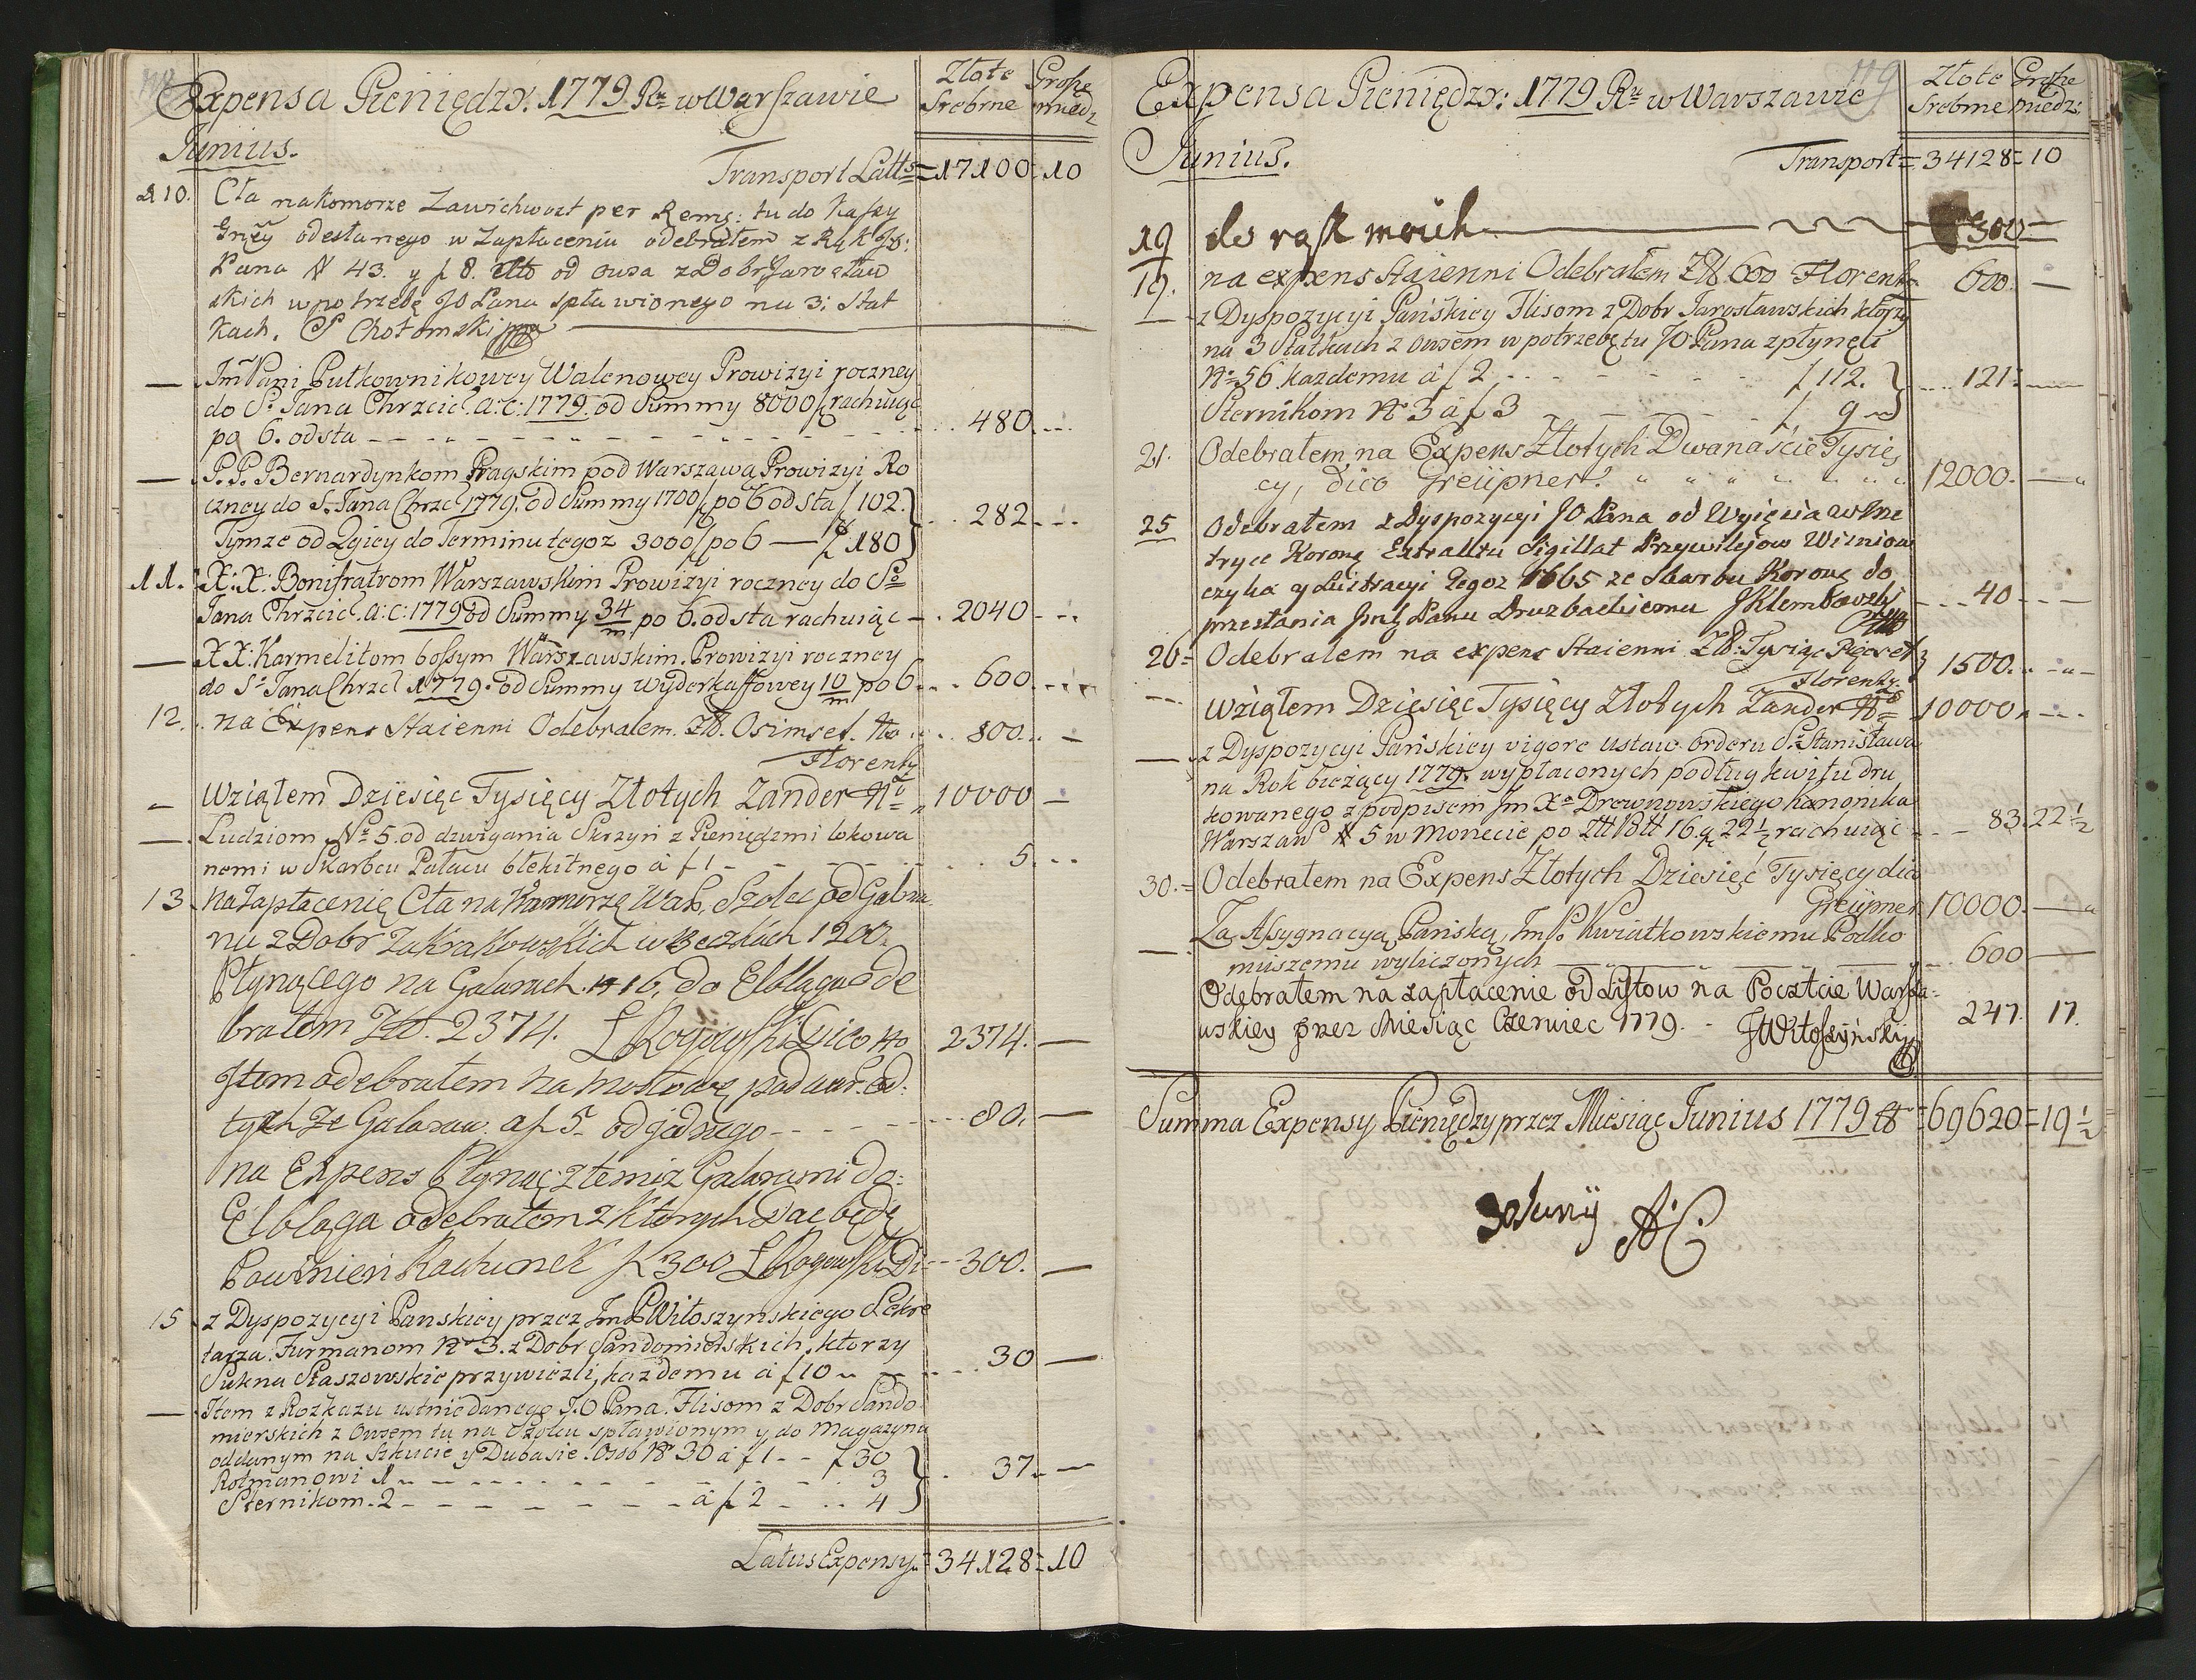 118
Expensa Pieniędzy. 1779 Ru w Warszawie
Złote Grosze
Srebrne miedz
Junius.
Transport Latts = 17100 = 10
d 10. Cła na Komorze Zawichwost per Rems: tu do Kassy
odesłanego w Zapłaceniu odebrałem z Rąk JO:
Pana # 43. y f 8. od owsa z Dobr Jarosław
skich w potrzebę JO Pana spławionego na 3: Stat
kach. P Chołomski
— Jm Pani Pułkownikowey Walenowey Prowizyi roczney
do S. Jana Chrzcic. a: c: 1779. od Summy 8000 f rachuiąc
po 6. od sta - - - 480. - - -
— P. P. Bernardynkom Pragskim pod Warszawą Prowizyi Ro
czney do S. Jana Chrzc 1779. od Summy 1700 f po 6 od sta f 102.
Tymze od Teyicy do Terminu tegoz 3000 f po 6 — f 180 } 282. - - -
11. X: X: Bonifratrom Warszawskim Prowizyi roczney do So
Jana Chrzcic. a: c: 1779 od Summy 34/m po 6. od sta rachuiąc - . 2040 - - -
— X X: Karmelitom bossym Warszawskim. Prowizyi roczney
do S. Jana Chrzc 1779. od Summy wyderkaffowey 10/m po 6. . . 600. - - -
12. na Expens Staienni Odebrałem. Zł. Osimset. No . . 800. . —
Florenty
— Wziąłem Dziesięć Tysięcy Złotych Zander 10000 —
— Ludziom No 5. od dzwigania Skrzyń z Pieniędzmi lokowa
nemi w Skarbcu Pałacu błękitnego á f 1 - - - 5. - - -
13 na Zapłacenie Cła na Kamorze Wars. Szolec od Galma
nu z Dobr Zakrakowskich w Beczkach 1200.
Płynącego na Galarach # 16. do Elbląga ode
brałem Zł. 2374. L Rogowski Dico No 2374. —
Item odebrałem na mostowe pod War. od
tychze Galarow. a f 5. od jednego - - - 80. —
na Expens Płynąc z temiz Galarami do:
Elbląga odebrałem z Ktorych Dac będę
Powinien Rachunek f 300 L Rogowski Di - - 300. —
15 z Dyspozycyi Panskiey przez Jm P Witoszynskiego Sekre
tarza. Furmanom No 3. z Dobr Sandomierskich, ktorzy
Sukna Staszowskie przywieźli, kazdemu á f 10 - - - 30 —
— Item z Rozkazu ustnie danego J. O Pana. Flisom z Dobr Sando
mierskich z Owsem tu na Szolcu spławionym y do Magazynu
oddanym na Szkucie y Dubasie. Osob No 30 á f 1 - - f 30
Rotmanowi 1 - - - 3
Sternikom. 2 - - - á f 2 - . . 4 } . 37. —
Latus Expensy = 34128 = 10
119
Expensa Pieniędzy: 1779 Ru w Warszawie
Złote Grosze
Srebrne miedz:
Junius.
Transport = 34128 = 10
19 do rąk moich — 300 —
19. na expens staienni Odebrałem Zł. 600 Florenty 600. —
— z Dyspozycyi Pańskiey Flisom z Dobr Jarosławskich ktorzy
na 3 Statkach z owsem w potrzebę tu JO Pana zpłynęli
No 56. kazdemu á f 2. - - - f 112.
Sternikom No 3 á f 3 - - - f 9 } . . . 121: —
21. Odebrałem na Expens Złotych Dwanaście Tysię
cy, dico Greüpner. 12000. —
25 Odebrałem z Dyspozycyi JO Pana od Wyięcia w Me
tryce Koronę Extraktu Sigillat Przywilejow Wisniow
czyka y Lustracyi Tegoz 1665 ze Skarbu Koronę do
przesłania Jmć Panu Druzbackiemu J Klembowski - - - 40 - - —
26 = Odebrałem na expens Staienni Zł: Tysiąc Pięcset
Florenty. 1500. —
- - - Wziąłem Dziesięć Tysięcy Złotych Zander 10000 - - -
— z Dyspozycyi Pańskiey vigore ustaw orderu S. Stanisława
na Rok bieżący 1779. wypłaconych podług kwitu dru
kowanego z podpisem Jm Xa Drewnowskiego Kanonika
Warszaw # 5 w Monecie po 16. g 22 ½ rachuiąc - - 83. 22 ½
30. = Odebrałem na Expens Złotych Dziesięć Tysięcy dico
Greüpner 10000. —
— Za Assygnacyą Pańską, Jm P. Kwiatkowskiemu Podko
muszemu wyliczonych — 600 —
Odebrałem na zapłacenie od Listow na Poczcie Warsza-
wskiey przez Miesiąc Czerwiec 1779. - J Witoszyński 247. 17.
Summa Expensy Pieniędzy przez Miesiąc Junius 1779 = 69620 = 19 ½
30 Junij AC